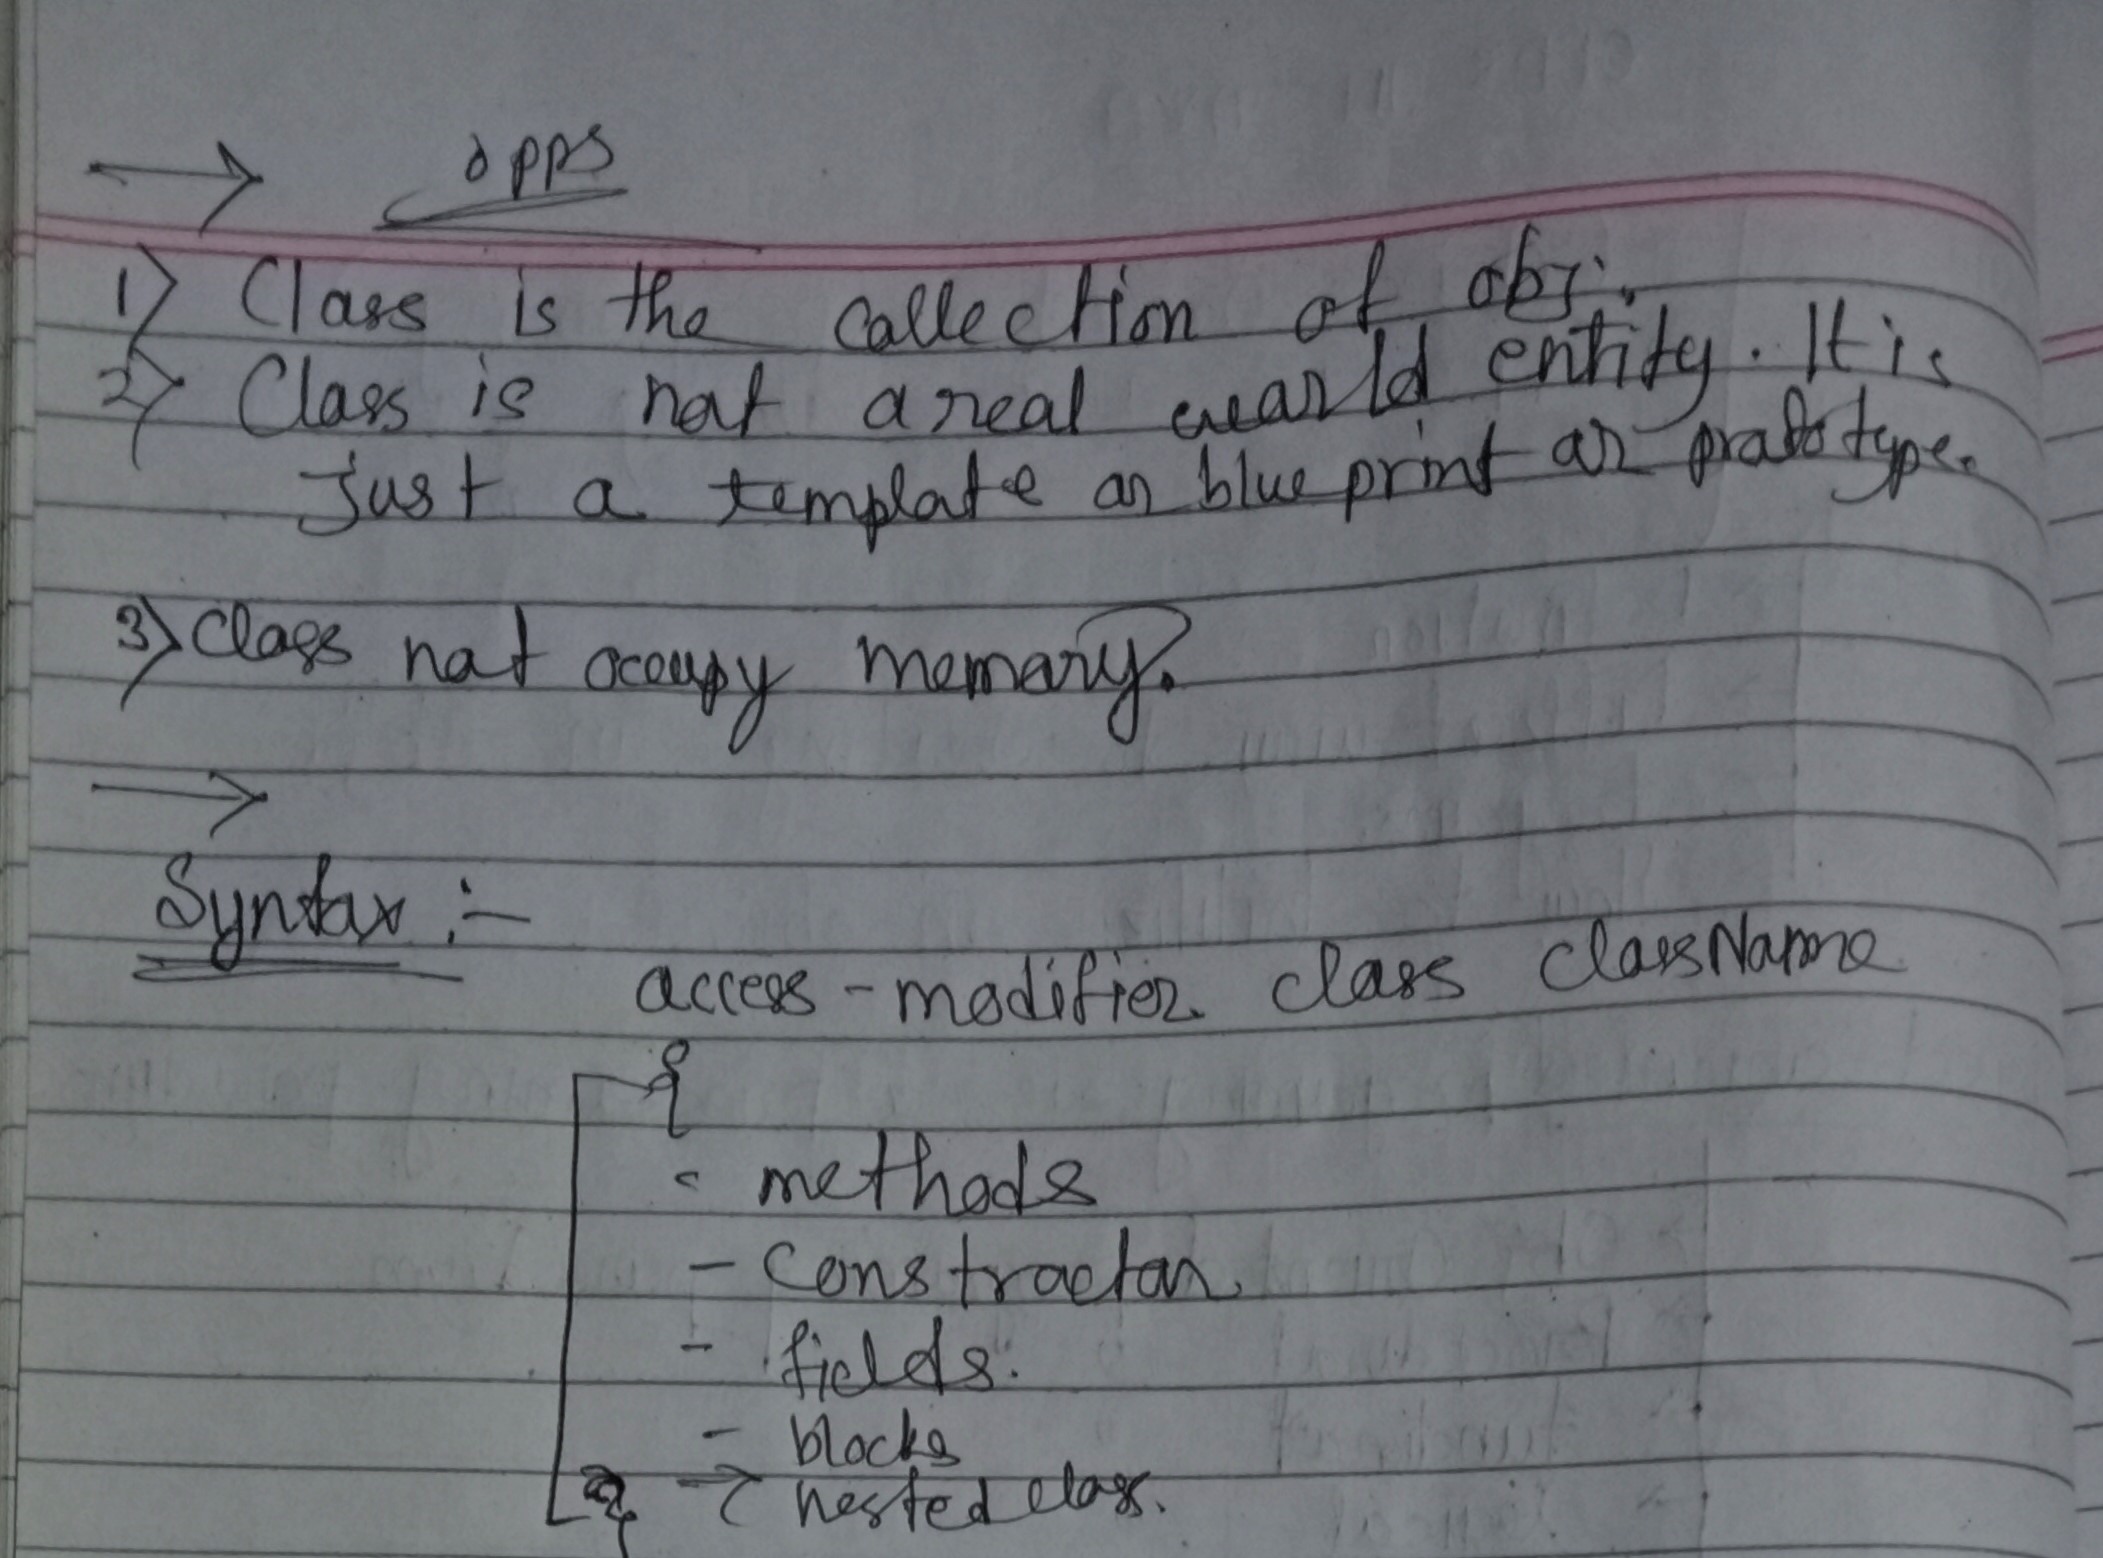 → opps
1) Class is the collection of obj.
2) Class is not a real world entity. It is
Just a template or blue print or prototype.
3) Class not occupy memory.
→
Syntax :-
access-modifier class className
{
- methods
- constractor
- fields.
- blocks
} → nested class.